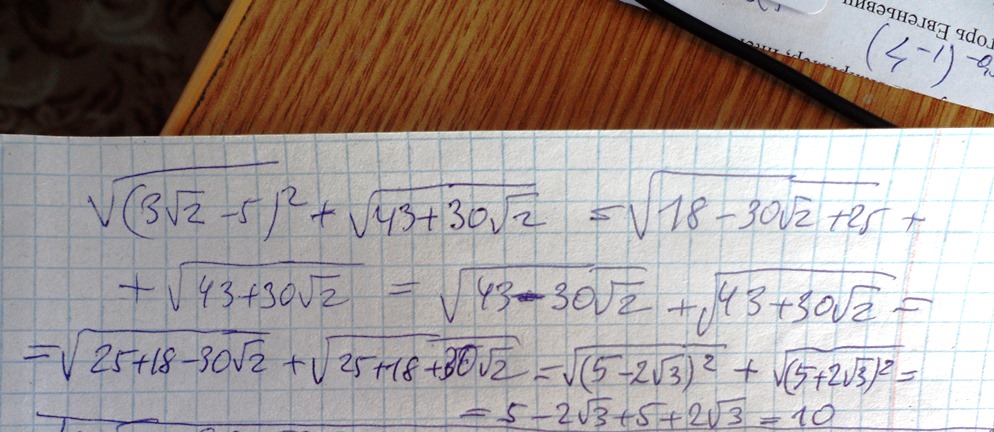 горь Евгеньевич
(1-4)
√(3√2 -5)² + √43+30√2 = √18-30√2+25 +
+ √43+30√2 = √43-30√2 + √43+30√2 =
= √25+18-30√2 + √25+18+30√2 = √(5-2√3)² + √(5+2√3)² =
= 5-2√3+5+2√3 = 10